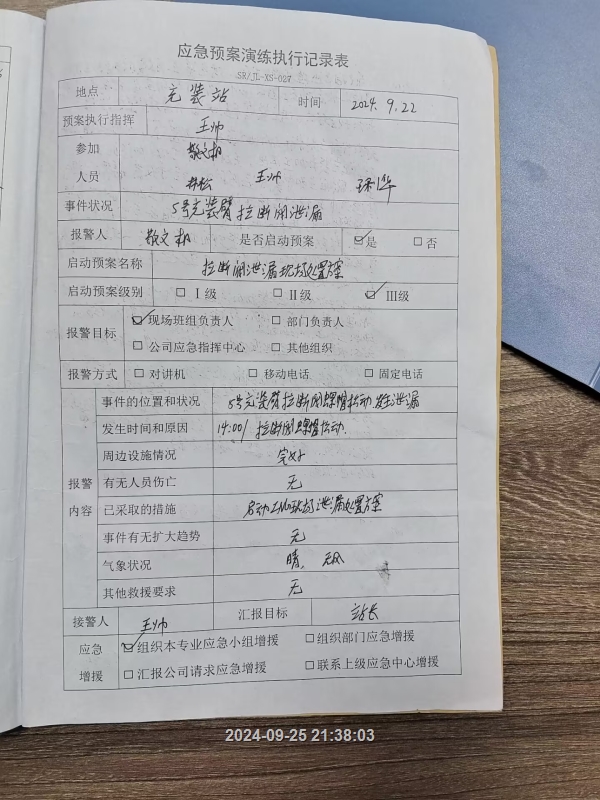 应急预案演练执行记录表
SR/JL-XS-027
地点 充装站 时间 2024.9.22
预案执行指挥 王帅
参加 敬文机
人员 林松 王帅
事件状况 5号充装臂拉断阀泄漏
报警人 敬文机 是否启动预案 ☑是 □否
启动预案名称 拉断阀泄漏现场处置方案
启动预案级别 □Ⅰ级 □Ⅱ级 ☑Ⅲ级
报警目标 ☑现场班组负责人 □部门负责人
□公司应急指挥中心 □其他组织
报警方式 □对讲机 □移动电话 □固定电话
报警内容
事件的位置和状况 5号充装臂拉断阀螺帽松动,发生泄漏
发生时间和原因 14:00/ 拉断阀螺帽松动.
周边设施情况 完好
有无人员伤亡 无
已采取的措施 启动现场泄漏处置方案
事件有无扩大趋势 无
气象状况 晴,无风
其他救援要求 无
接警人 王帅 汇报目标 站长
应急 ☑组织本专业应急小组增援 □组织部门应急增援
增援 □汇报公司请求应急增援 □联系上级应急中心增援
2024-09-25 21:38:03